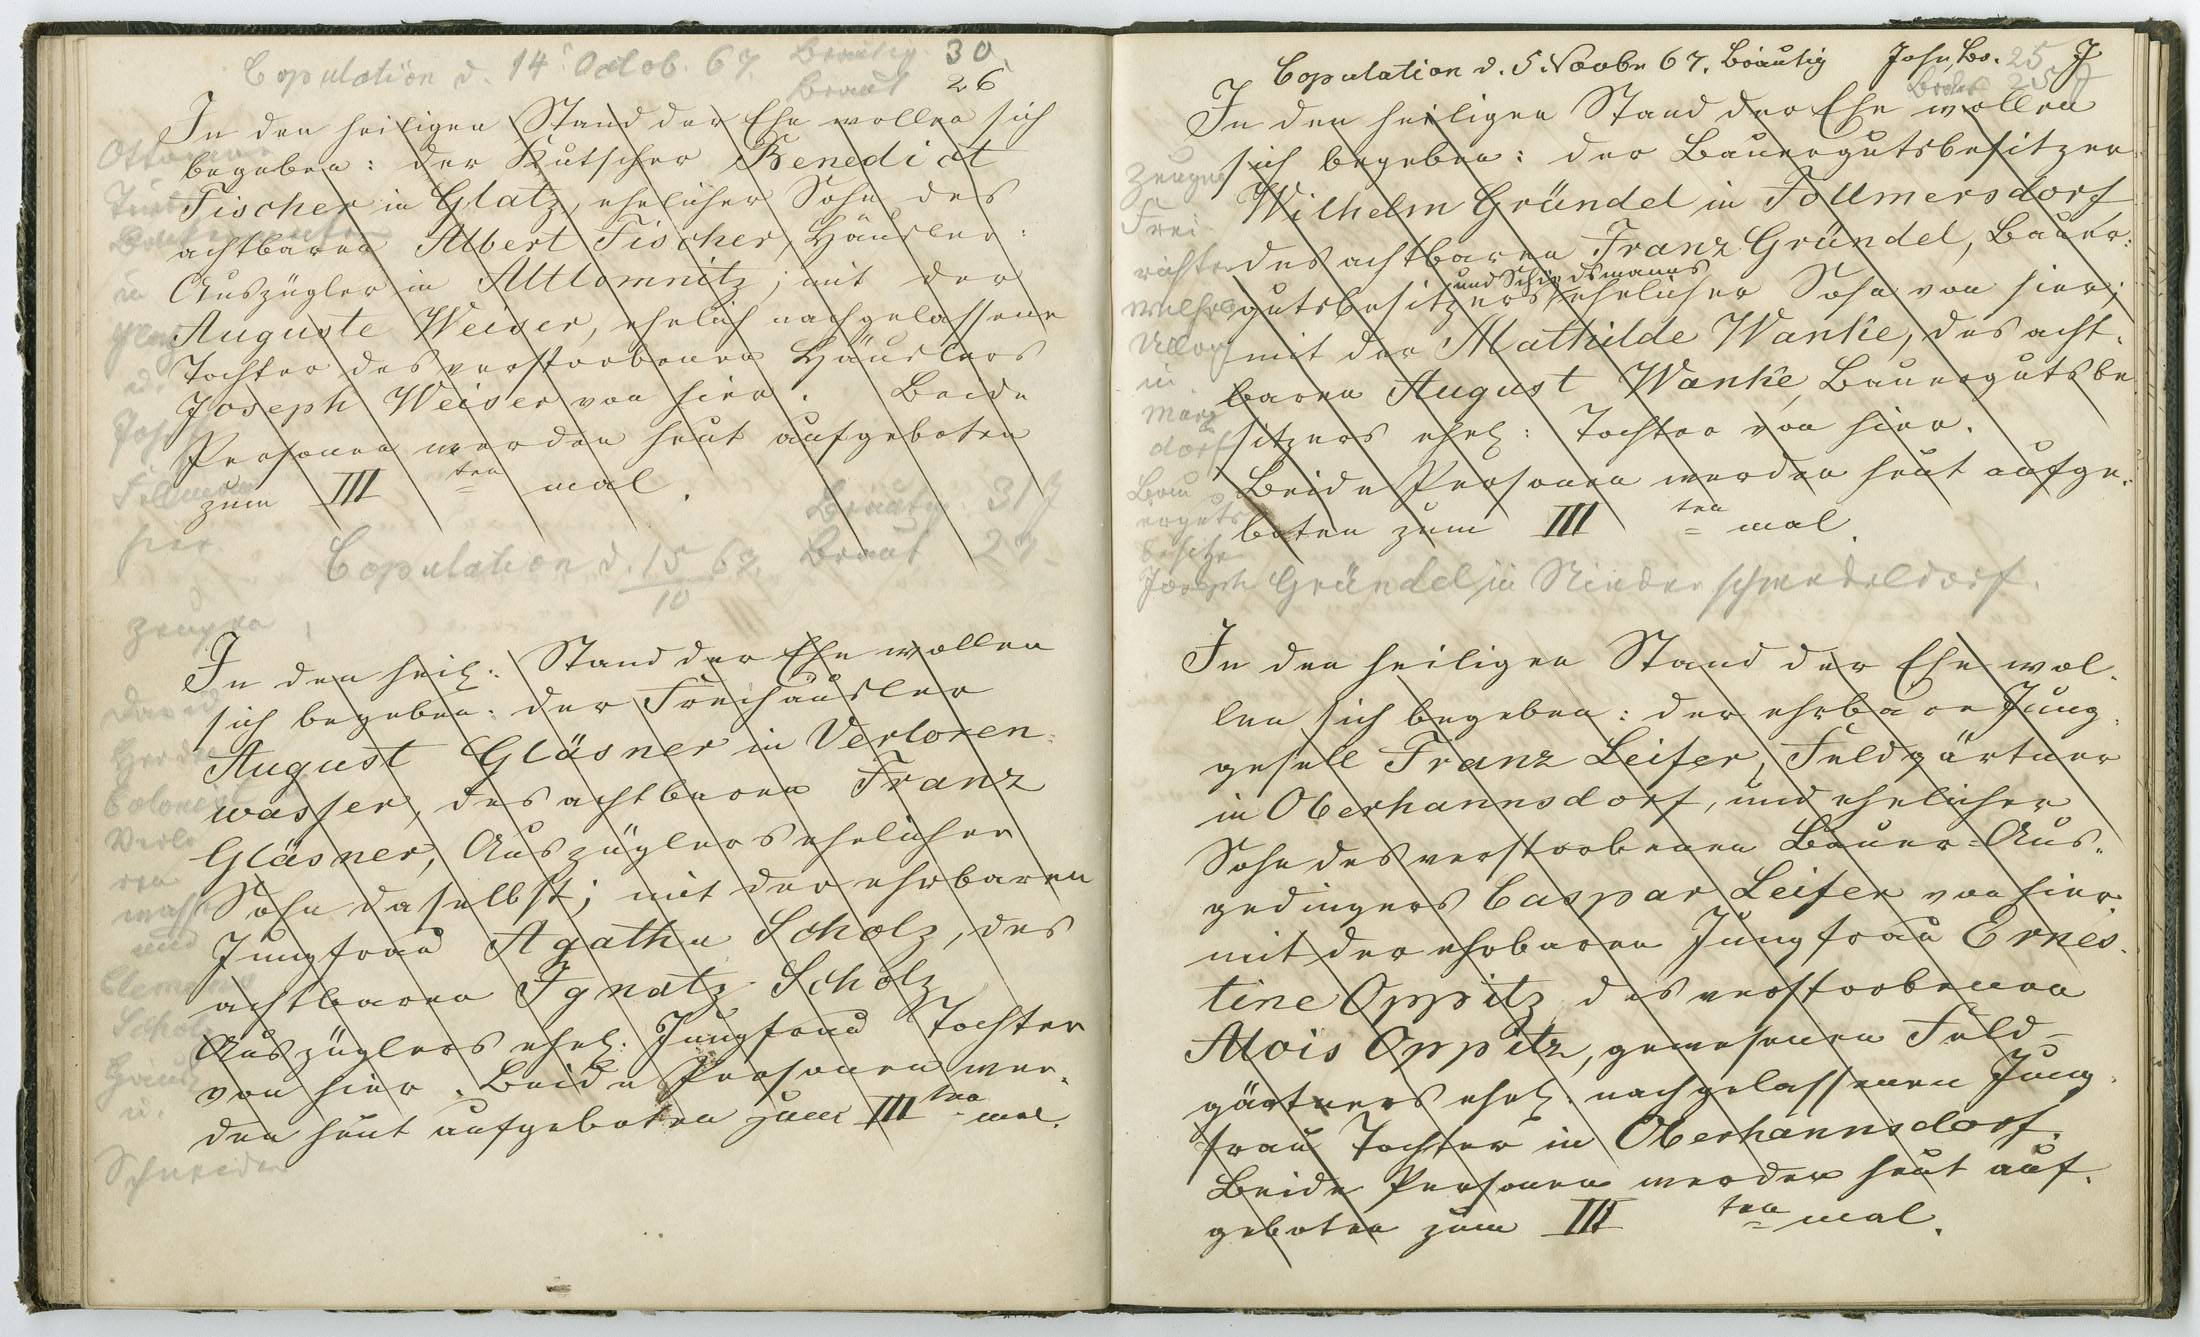 Copulation d. 14t Octob. 67. Bräutig. 30.
Braut 26
In den heiligen Stand der Ehe wollen sich
begeben: der Kutscher Benedict
Fischer in Glatz, ehelicher Sohn des
achtbaren Albert Fischer, Häusler:
Auszügler in Altlomnitz; mit der
Auguste Weiser, ehelich nachgelassene
Tochter des verstorbenen Häuslers
Joseph Weiser von hier. Beide
Personen werden heut aufgeboten
zum III ten mal.
Bräutig. 31 J
Copulation d. 15/10 67. Braut 27
Zeugen
In den heil: Stand der Ehe wollen
sich begeben: der Freihäusler
August Gläsner in Verloren-
wasser, des achtbaren Franz
Gläsner, Auszüglers ehelicher
Sohn daselbst; mit der ehrbaren
Jungfrau Agatha Scholz, des
achtbaren Ignatz Scholz
Auszüglers ehel: Jungfrau Tochter
von hier. Beide Personen wer-
den heut aufgeboten zum III ten mal.
David
Colonist
Verlo
ren
wasser
und
Clemens
Scholz
u.
Schneider
Copulation d. 5. Novbr 67. Bräutig 25 J
Braut 25 J
In den heiligen Stand der Ehe wollen
sich begeben: der Bauergutsbesitzer
Wilhelm Gründel in Follmersdorf
des achtbaren Franz Gründel, Bauer-
und Schiedsmanns
gutsbesitzers ehelicher Sohn von hier;
mit der Mathilde Wanke, des acht-
baren August Wanke, Bauergutsbe
sitzers ehel: Tochter von hier.
Beide Personen werden heut aufge-
boten zum III ten mal.
Zeugen
Frei-
richter
Wilhelm
in
Märzdorf
Bau
erguts
besitzer
Joseph Gründel in Niederschwedeldorf.
In den heiligen Stand der Ehe wol-
len sich begeben: der ehrbare Jung-
gesell Franz Leifer, Feldgärtner
in Oberhannsdorf, und ehelicher
Sohn des verstorbenen Bauer-Aus-
gedingers Caspar Leifer von hier
mit der ehrbaren Jungfrau Ernes-
tine Oppitz des verstorbenen
Alois Oppitz, gewesenen Feld-
gärtners ehel: nachgelassenen Jung-
frau Tochter in Oberhannsdorf.
Beide Personen werden heut auf-
geboten zum III ten mal.